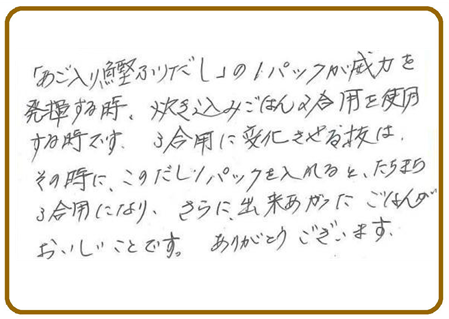 「あご入り鰹ふりだし」の1パックが威力を
発揮する時、炊き込みごはん2合用を使用
する時です。3合用に変化させる技は、
その時に、このだし1パックを入れると、たちまち
3合用になり、さらに、出来あがったごはんが
おいしいことです。ありがとうございます。